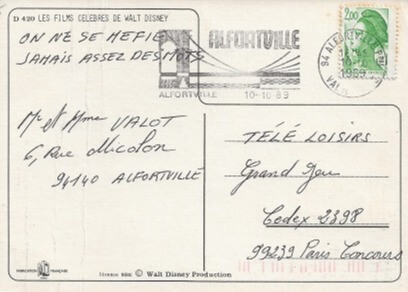 D 420 LES FILMS CELEBRES DE WALT DISNEY
ON NE SE MEFIE
JAMAIS ASSEZ DES MOTS
ALFORTVILLE
ALFORTVILLE 10-10-89
2,00
94 ALFORTVILLE
1989
Mr et Mme VALOT
6, Rue Micolon
94140 ALFORTVILLE
TÉLÉ LOISIRS
Grand Jeu
Cedex 2398
99239 Paris Concours
FRANÇAISE
© Walt Disney Production